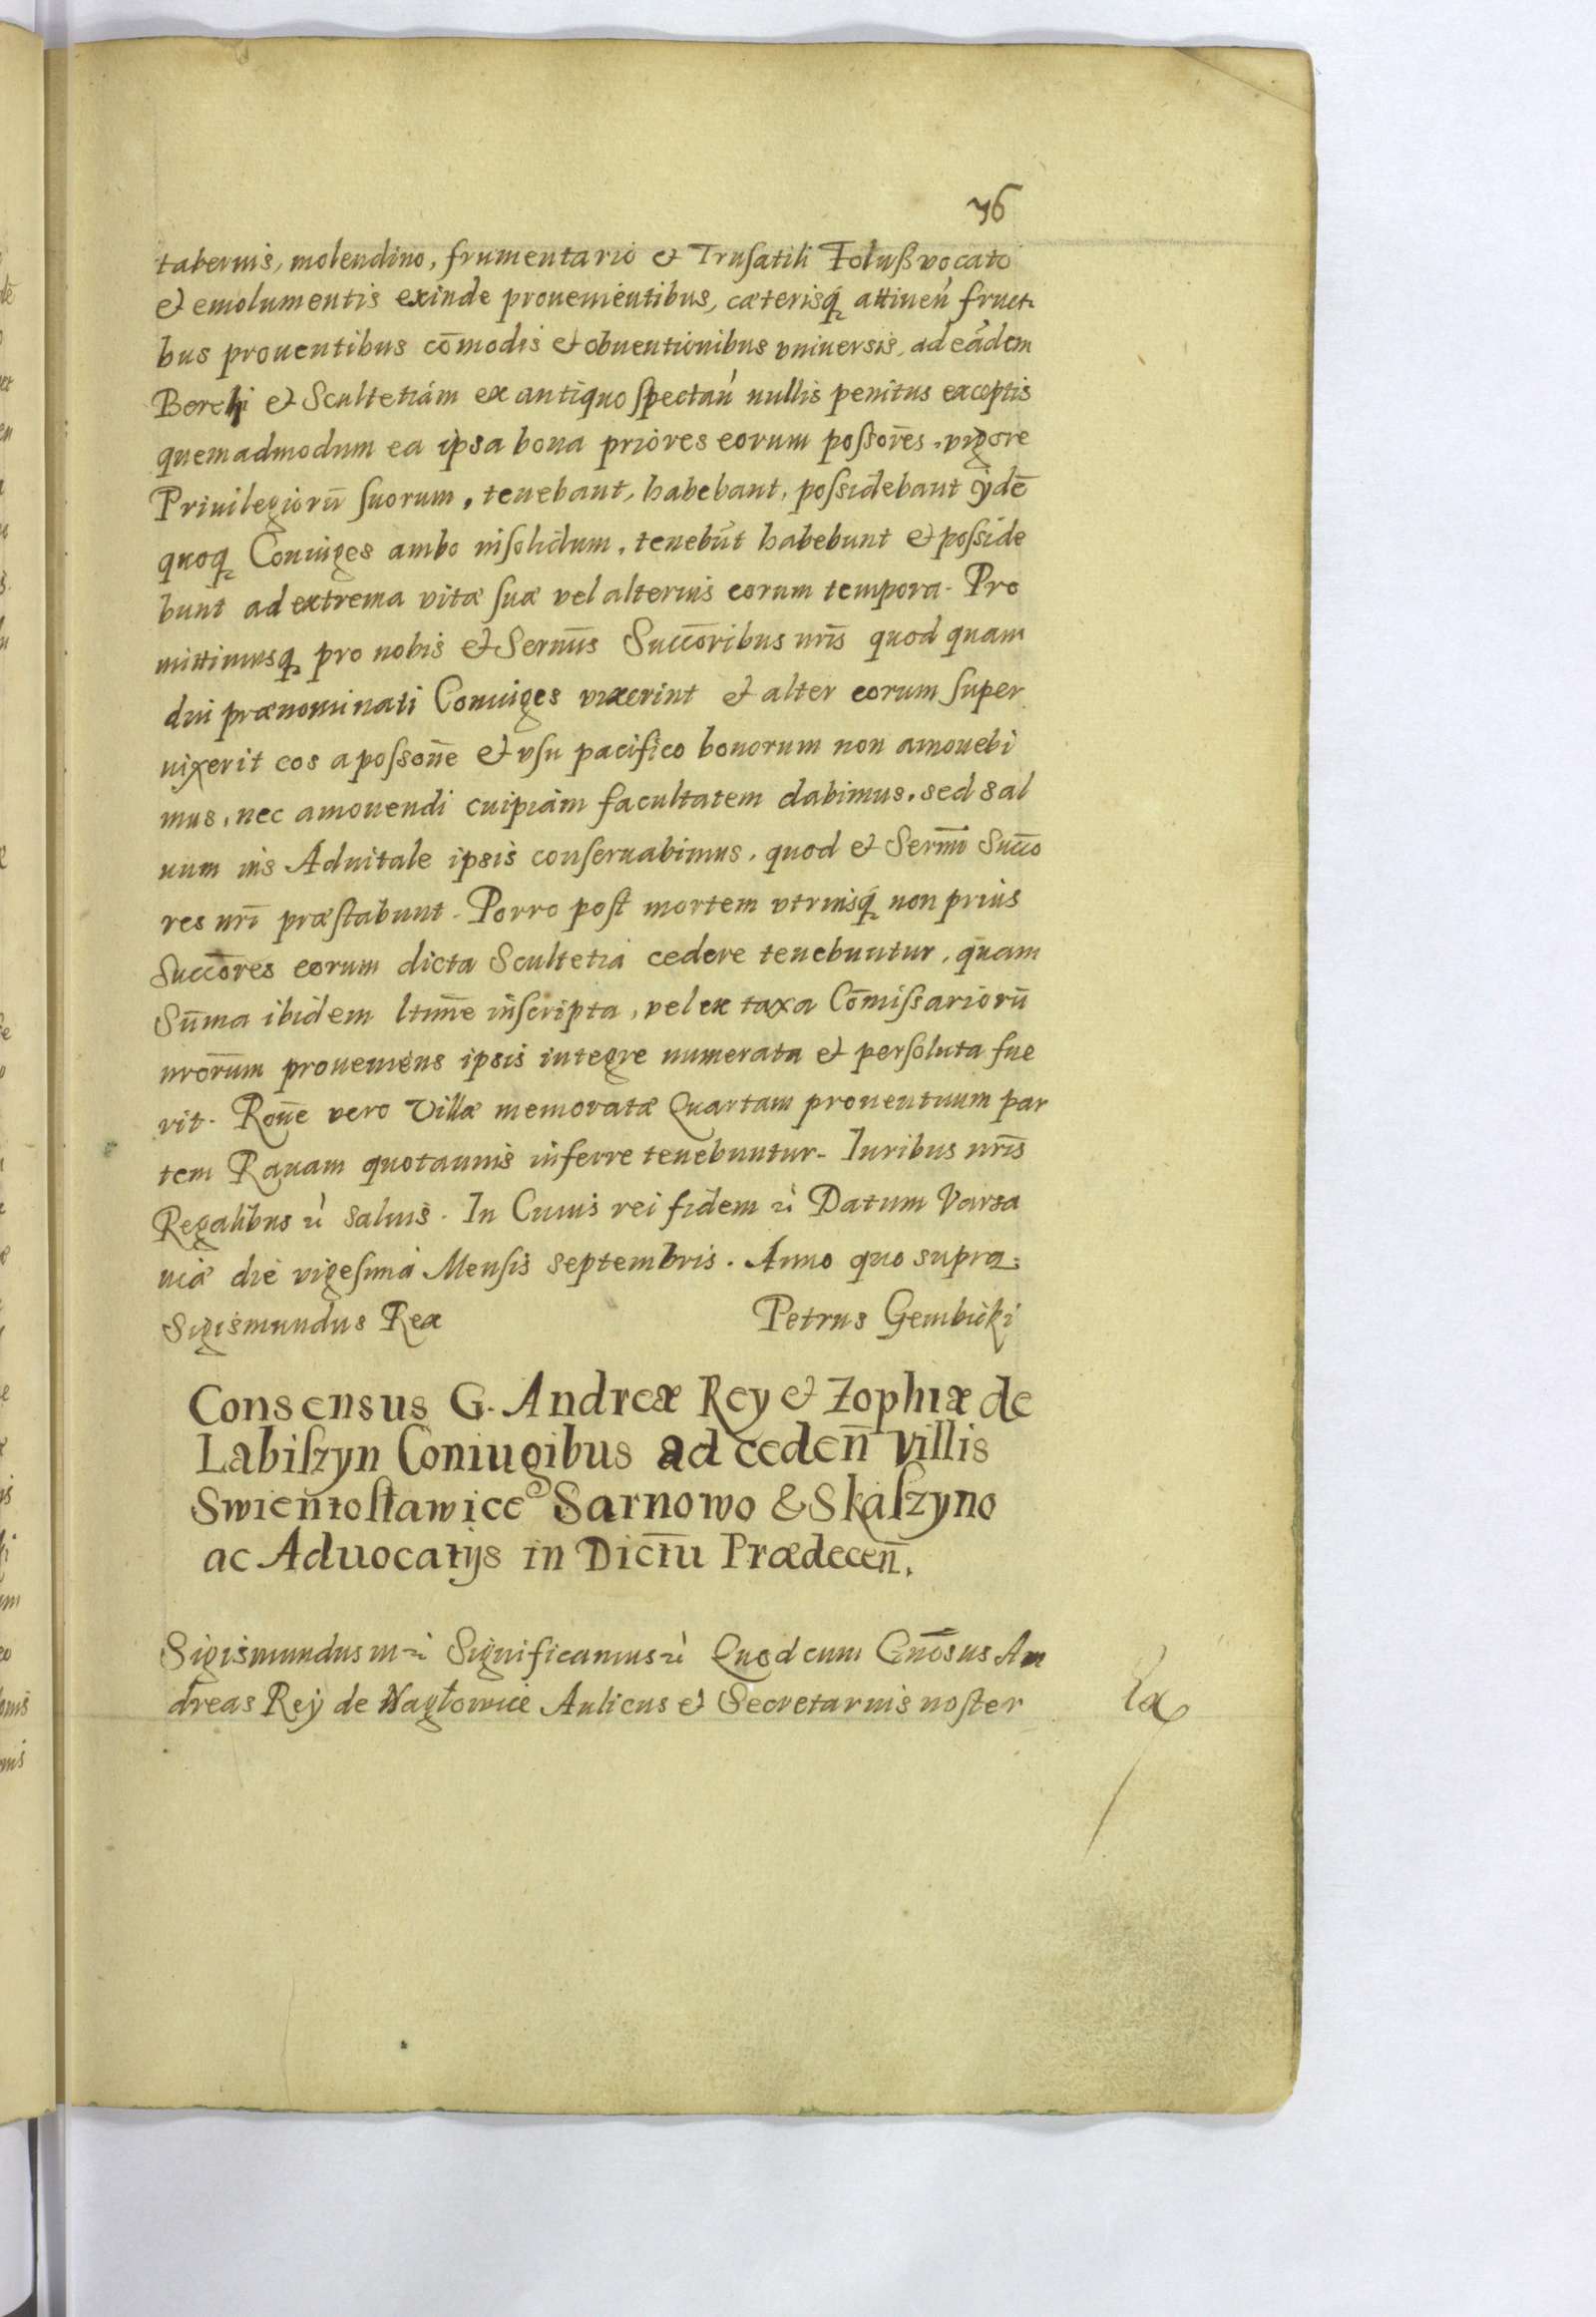 76
tabernis, molendino, frumentario et Trusatili Foluß vocato
et emolumentis exinde prouenientibus, cæterisq́ꝫ attinen̄ fructi
bus prouentibus cōmodis et obuentionibus vniuersis, ad eādem
Borehi et Scultetiam ex antiquo spectan̄ nullis penitus exceptis
quemadmodum ea ipsa bona priores eorum possōres, vigore
Priuilegiorū suorum, tenebant, habebant, possidebant ÿdē
quoqꝫ Coniuges ambo insolidum, tenebūt habebunt et posside
bunt ad extrema vitæ suæ vel alterius eorum tempora. Pro
mittimusqꝫ pro nobis et Sernn̄s Succōribus nrīs quod quam
diu prænominati Coniuges vixerint et alter eorum super
uixerit eos a possōne et vsu pacifico bonorum non amouebi
mus, nec amouendi cuipiam facultatem dabimus, sed sal
uum ius Aduitale ipsis conseruabimus, quod et Sermī Succo
res nrī præstabunt. Porro post mortem vtriusq́ꝫ non prius
Succōres eorum dicta Scultetia cedere tenebuntur, quam
Sūma ibidem ltīme inscripta, vel ex taxa Cōmissariorū
nrōrum proueniens ipsis integre numerata et persoluta fue
rit. Rōne vero Villæ memoratæ Quartam prouentuum par
tem Rauam quotannis inferre tenebuntur. Iuribus nrīs
Regalibus ꝛ̀ saluis. In Cuius rei fidem ꝛ̀ Datum Varsa
uiæ die vigesima Mensis Septembris. Anno quo supra.
Sigismundus Rex Petrus Gembicki
Consensus G. Andreæ Rey et Zophiæ de
Labiszyn Coniugibus ad ceden̄ villis
Swientosławice Sarnowo & Skaszyno
ac Aduocatijs in Dictū Prædecen̄.
Sigismundus III ꝛ̀ Significamus ꝛ̀ Quod cum Gnōsus An
dreas Reÿ de Nagłowice Aulicus et Secretarius noster